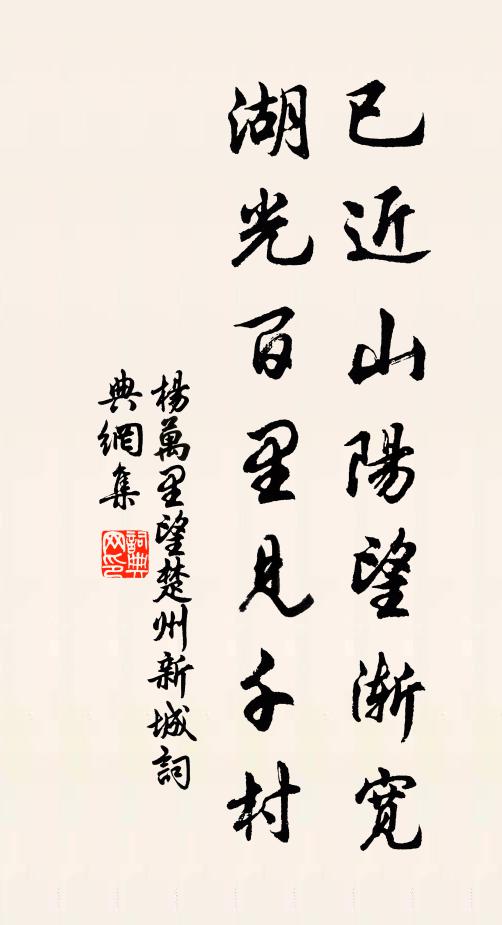 已近山陽望漸寬
湖光百里見千村
楊萬里望楚州新城詞
典網集
詞典
网印